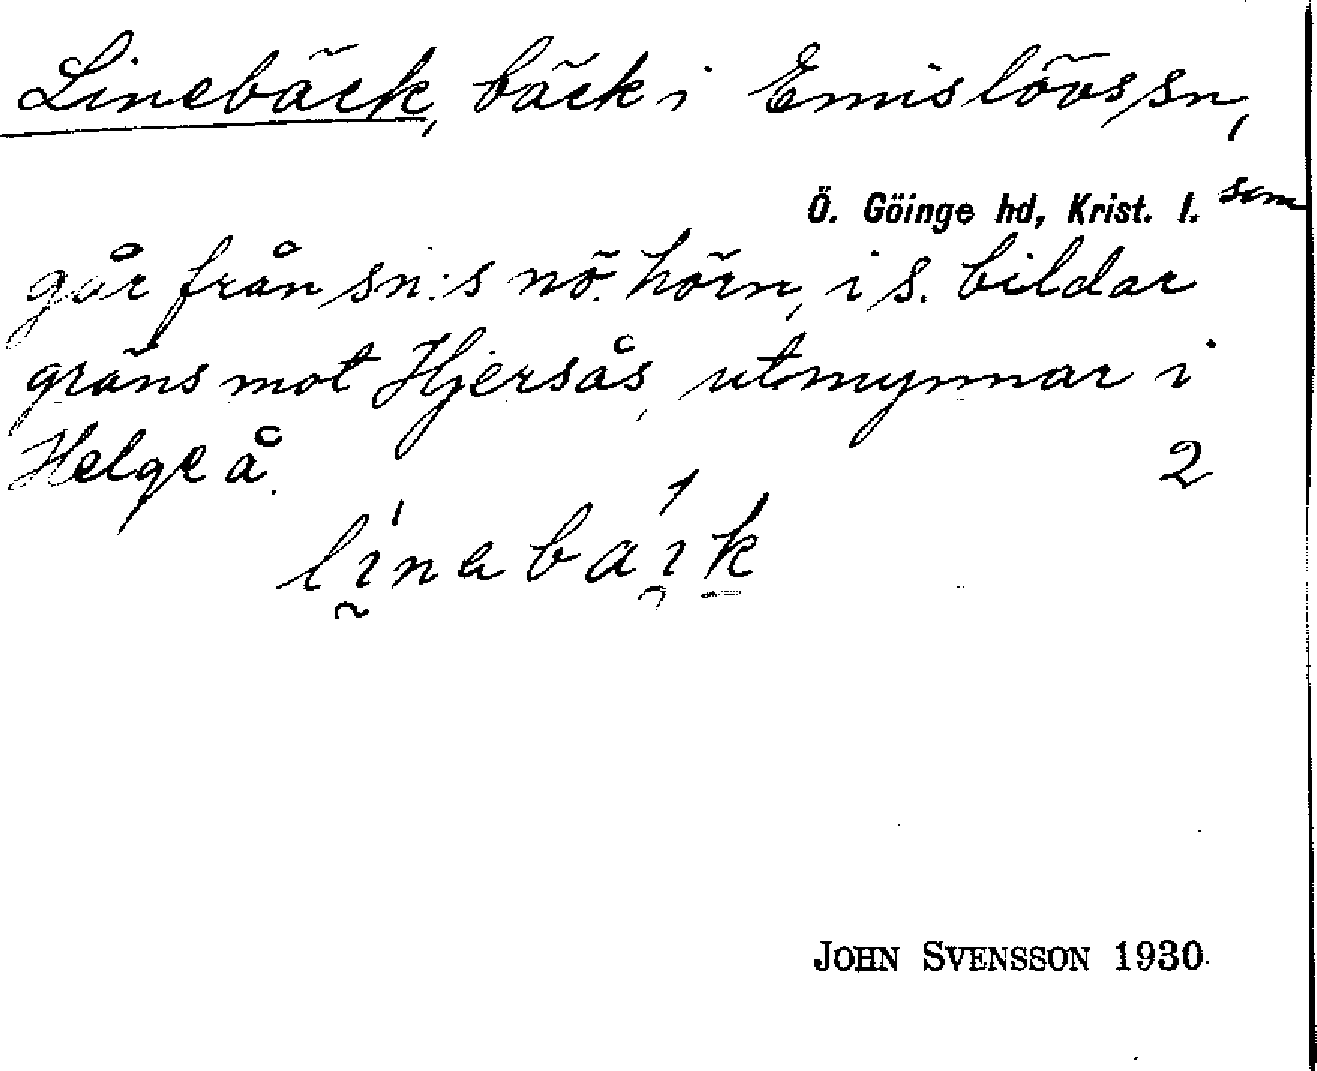 Linebäck, bäck i Emislövs sn,
Ö. Göinge hd, Krist. l. som
går från sn:s nö. hörn, i s. bildar
gräns mot Hjersås, utmynnar i
Helge å. 2
linabaik
JOHN SVENSSON 1930